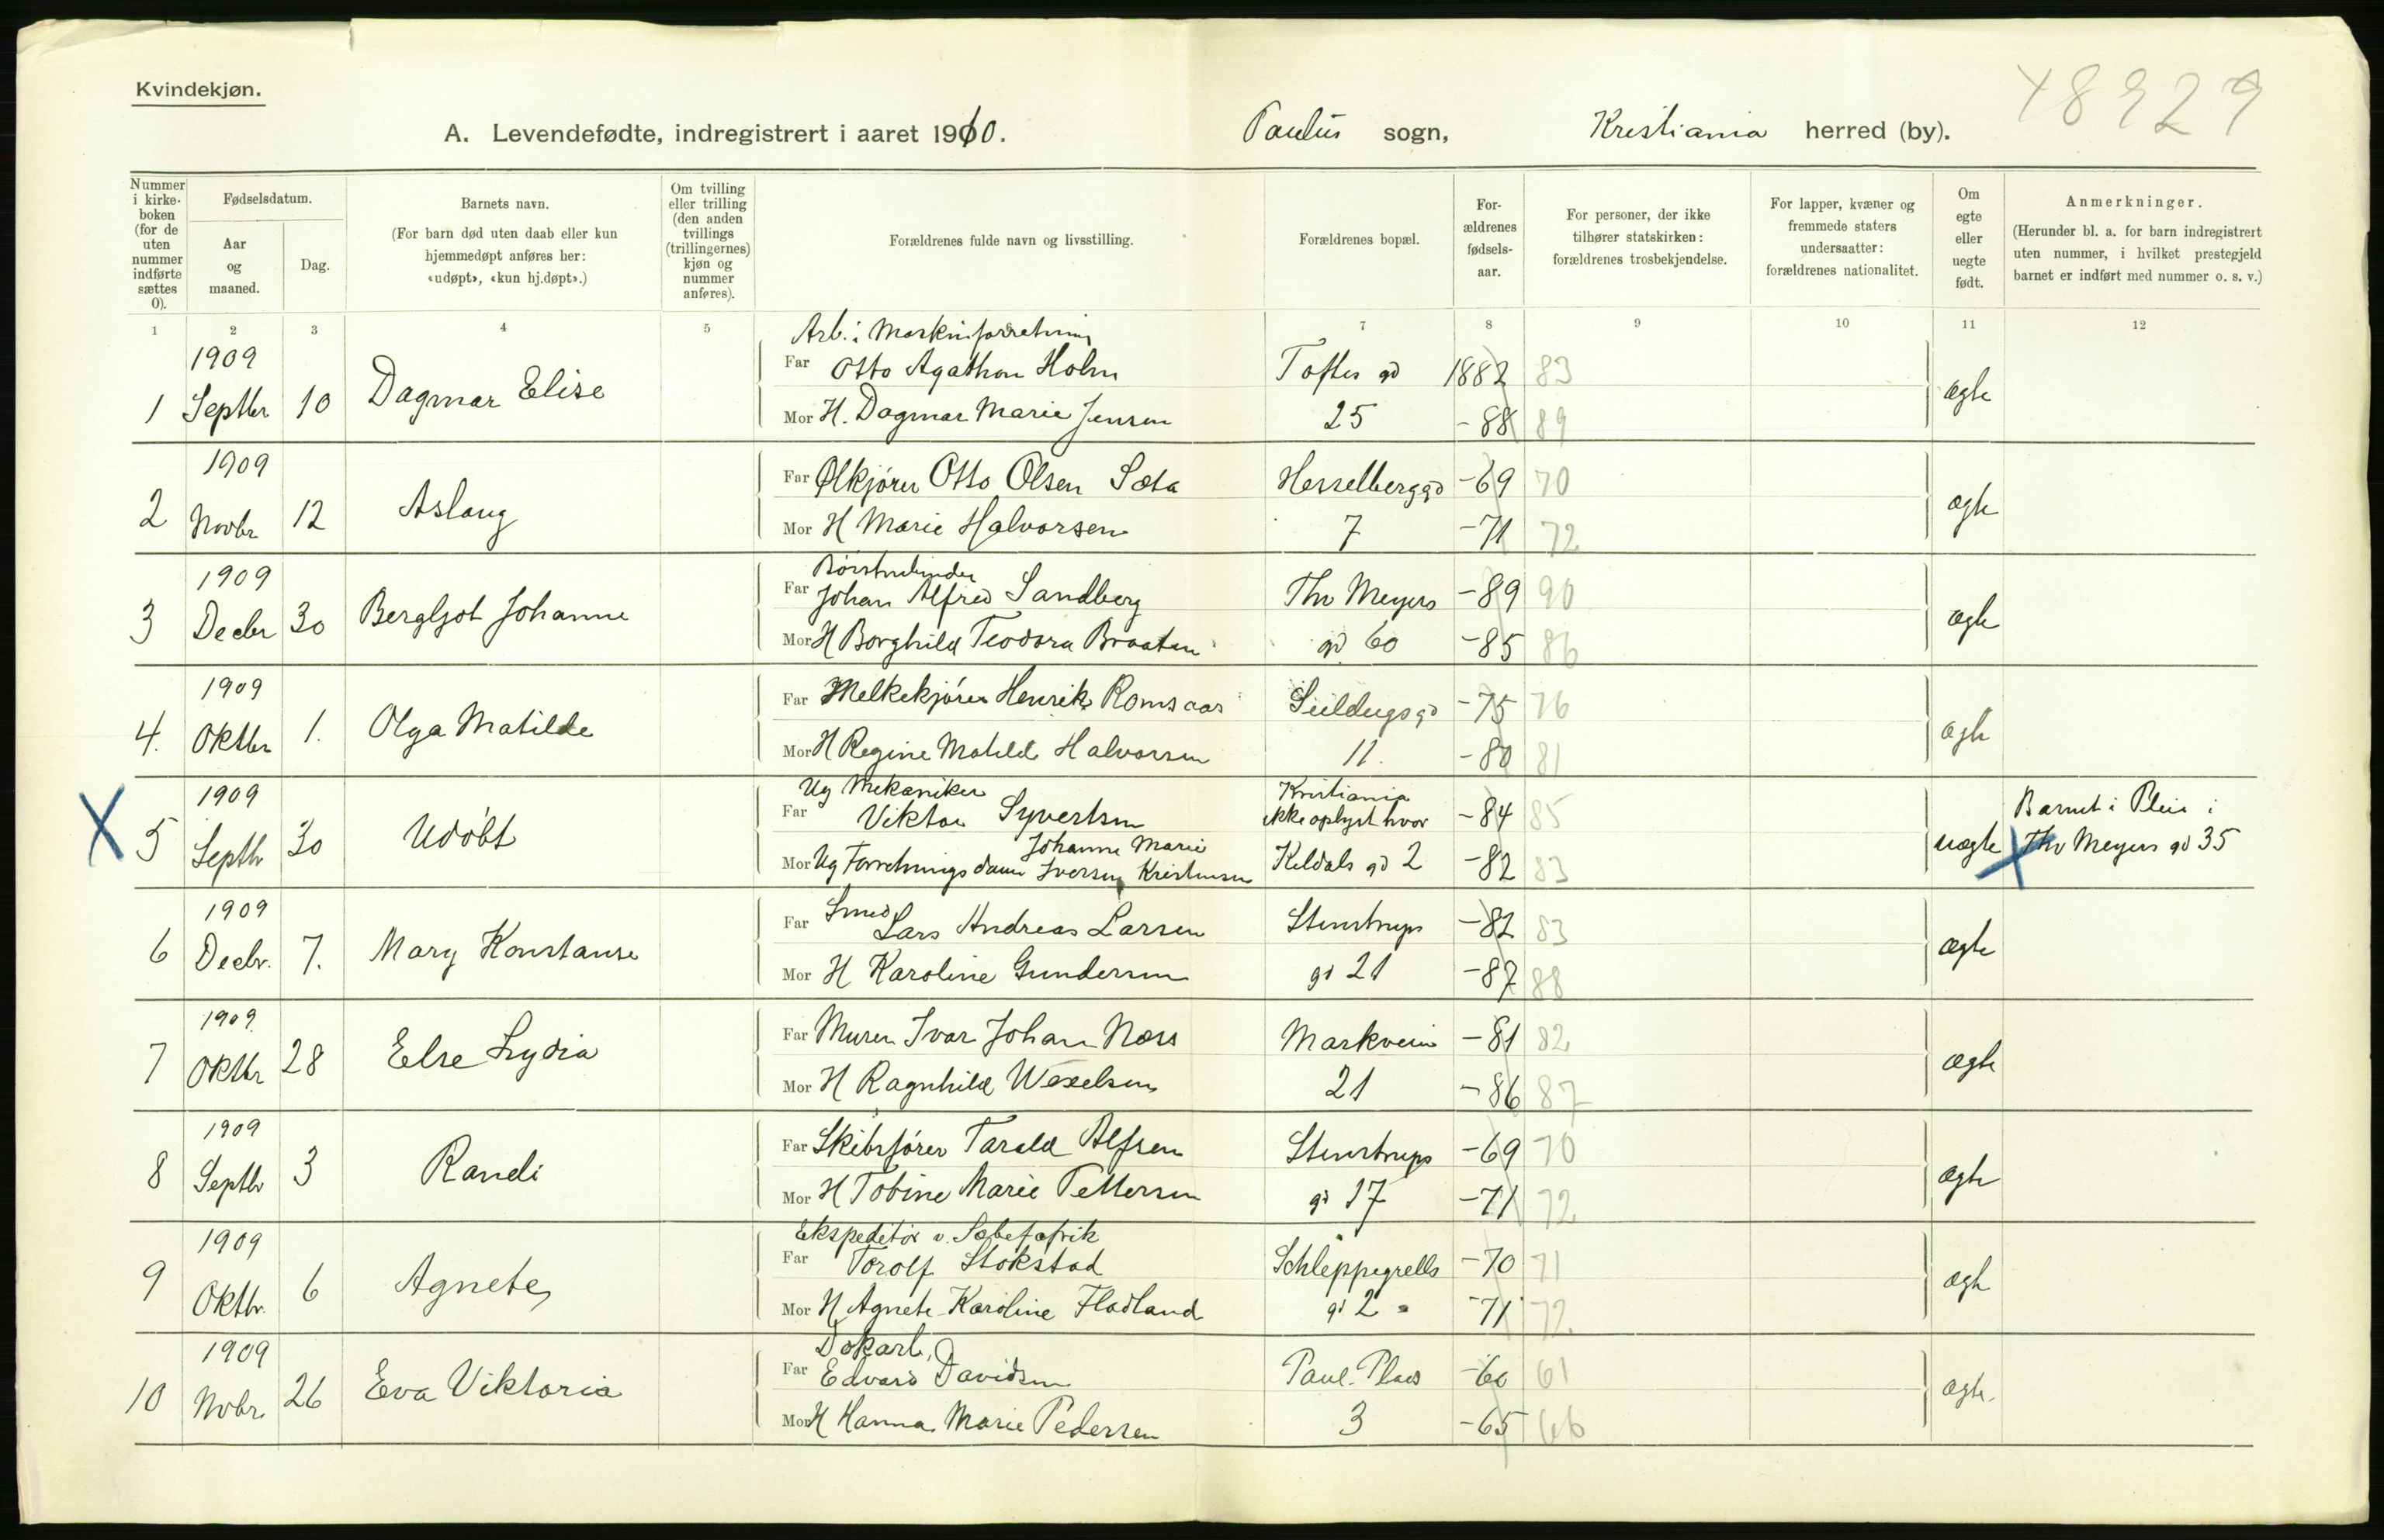 Kvindekjøn.
48929
A. Levendefødte, indregistrert i aaret 1910. Paulus sogn, Kristiania herred (by).
Nummer i kirke-boken (for de uten nummer indførte sættes 0).
Fødselsdatum.
Aar og maaned.
Dag.
Barnets navn.
(For barn død uten daab eller kun hjemmedøpt anføres her: «udøpt», «kun hj.døpt».)
Om tvilling eller trilling (den anden tvillings (trillingernes) kjøn og nummer anføres).
Forældrenes fulde navn og livsstilling.
Forældrenes bopæl.
For-ældrenes fødsels-aar.
For personer, der ikke tilhører statskirken: forældrenes trosbekjendelse.
For lapper, kvæner og fremmede staters undersaatter: forældrenes nationalitet.
Om egte eller uegte født.
Anmerkninger.
(Herunder bl. a. for barn indregistrert uten nummer, i hvilket prestegjeld barnet er indført med nummer o. s. v.)
1 2 3 4 5 7 8 9 10 11 12
1909 Arb. i Maskinforretning
Far Otto Agathon Holm Toftes gd 1882 83
1 Septbr 10 Dagmar Elise ægte
Mor H. Dagmar Marie Jensen 25 -88 89
1909 Far Ølkjører Otto Olsen Sæta Hesselberggd -69 70
2 Novbr 12 Aslaug ægte
Mor H Marie Halvorsen 7 -71 72
1909 Børstenbinder
Far Johan Alfred Sandberg Thv Meyers -89 90
3 Decbr 30 Bergljot Johanne ægte
Mor H Borghild Teodora Braaten gd 60 -85 86
1909 Far Melkekjører Henrik Romsaas Seildugsgd -75 76
4. Oktbr 1. Olga Matilde ægte
Mor H Regine Mathilde Halvorsen 11. -80 81
1909 Ug Mekaniker Kristiania
Far Viktor Syvertsen ikke oplyst hvor -84 85 Barnet i Pleie i
X 5 Septbr 30 Udöbt uægte X Thv Meyers gd 35
Johanne Marie
Mor Ug Forretningsdame Iversen Kristensen Keldals gd 2 -82 83
1909 Smed
Far Lars Andreas Larsen Stenstrups -82 83
6 Decbr. 7. Mary Konstanse ægte
Mor H Karoline Gundersen gd 21 -87 88
1909 Far Murer Ivar Johan Næss Markvein -81 82
7 Oktbr 28 Else Lydia ægte
Mor H Ragnhild Wexelsen 21 -86 87
1909 Far Skibsfører Tarald Alfsen Stenstrups -69 70
8 Septbr 3 Randi ægte
Mor H Tobine Marie Pettersen gd 17 -71 72
1909 Ekspeditør v. Sæbefabrik
Far Torolf Stokstad Schleppegrells -70 71
9 Oktbr. 6 Agnete ægte
Mor H Agnete Karoline Fladland gd 2 -71 72
1909 Dokarb.
Far Edvard Davidsen Paul. Plads -60 61
10 Nobr. 26 Eva Viktoria ægte.
Mor H Hanna Marie Pedersen 3 -65 66